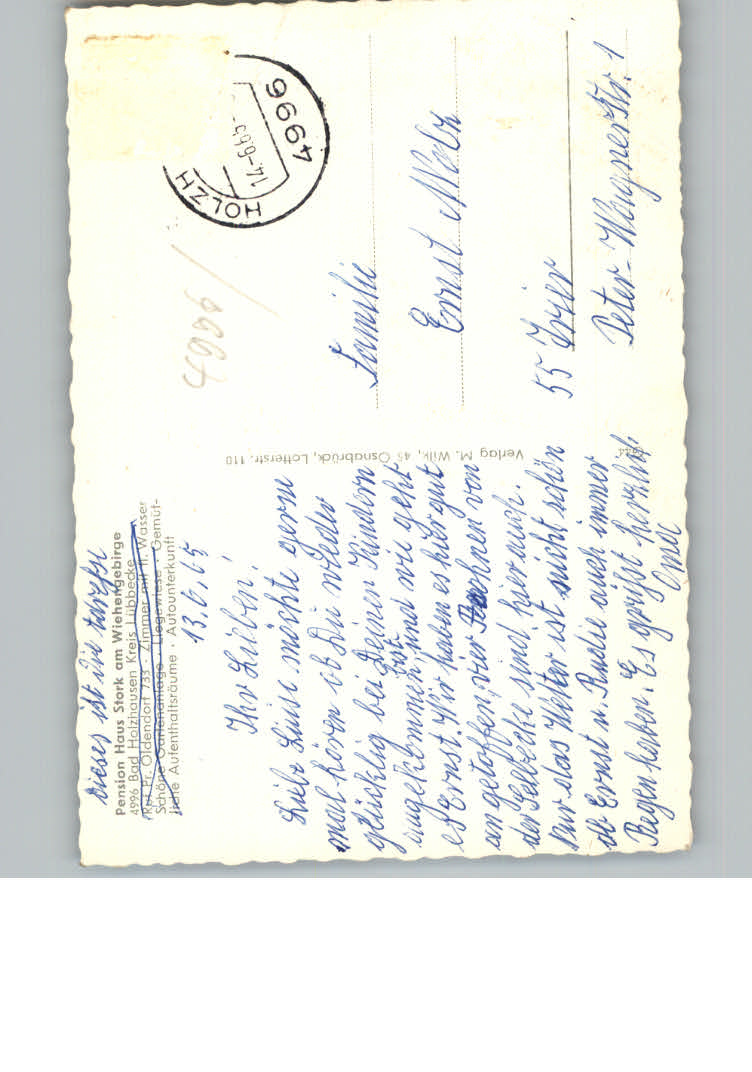 dieses ist die
Pension Haus Stork am Wiehengebirge
4996 Bad Holzhausen Kreis Lübbecke
Ruf Pr. Oldendorf 733 · Zimmer mit fl. Wasser
Schöne Gartenanlage · Liegewiese · Gemüt-
liche Aufenthaltsräume · Autounterkunft
13.6.65
Ihr Lieben!
Liebe Luise möchte gerne
mal hören ob Du wieder
glücklig bei Deinen Kindern
angekommen bist und wie geht
es Ernst. Wir haben es hier gut
an getoffen, vier von
der Selbecke sind hier auch.
Nur das Weter ist nicht schön
ob Ernst u. auch immer
Regen haben. Es grüßt herzlich
Oma
Verlag M. Wilk, 45 Osnabrück, Lotterstr. 110
4996
HOLZH
14.-6.65
4996
Familie
Ernst
55 Trier
Peter-Wagnerstr. 1